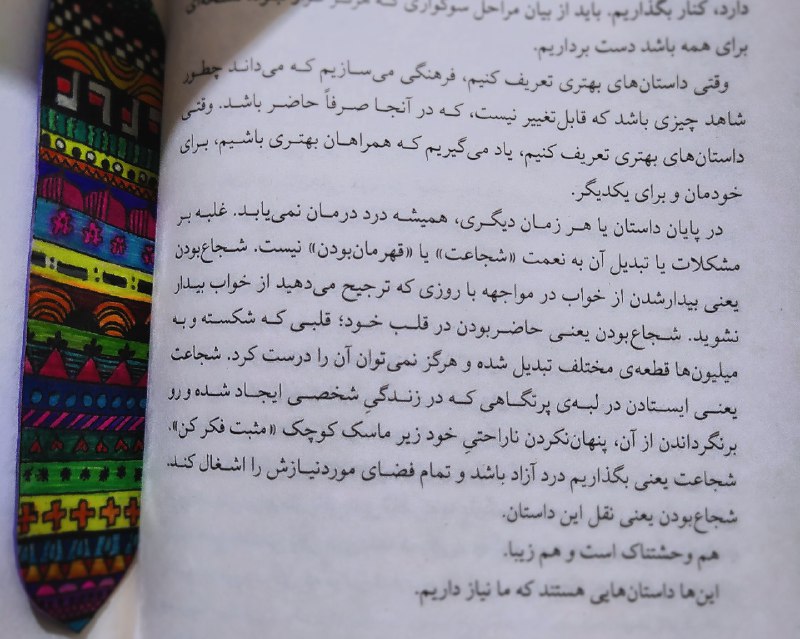 دارد، کنار بگذاریم. باید از بیان مراحل سوگواری که
برای همه باشد دست برداریم.
وقتی داستان‌های بهتری تعریف کنیم، فرهنگی می‌سازیم که می‌داند چطور
شاهد چیزی باشد که قابل‌تغییر نیست، که در آنجا صرفاً حاضر باشد. وقتی
داستان‌های بهتری تعریف کنیم، یاد می‌گیریم که همراهان بهتری باشیم، برای
خودمان و برای یکدیگر.
در پایان داستان یا هر زمان دیگری، همیشه درد درمان نمی‌یابد. غلبه بر
مشکلات یا تبدیل آن به نعمت «شجاعت» یا «قهرمان‌بودن» نیست. شجاع‌بودن
یعنی بیدارشدن از خواب در مواجهه با روزی که ترجیح می‌دهید از خواب بیدار
نشوید. شجاع‌بودن یعنی حاضربودن در قلب خود؛ قلبی که شکسته و به
میلیون‌ها قطعه‌ی مختلف تبدیل شده و هرگز نمی‌توان آن را درست کرد. شجاعت
یعنی ایستادن در لبه‌ی پرتگاهی که در زندگیِ شخصی ایجاد شده و رو
برنگرداندن از آن، پنهان‌نکردن ناراحتیِ خود زیر ماسک کوچک «مثبت فکر کن».
شجاعت یعنی بگذاریم درد آزاد باشد و تمام فضای موردنیازش را اشغال کند.
شجاع‌بودن یعنی نقل این داستان.
هم وحشتناک است و هم زیبا.
این‌ها داستان‌هایی هستند که ما نیاز داریم.